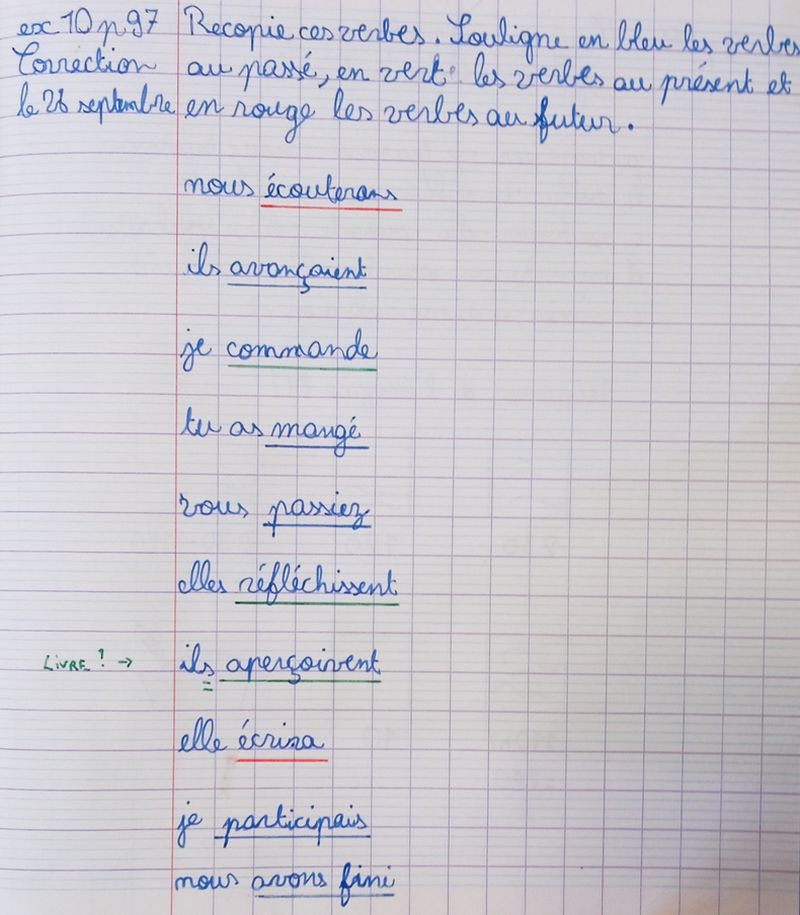 ex 10 p 97 Recopie ces verbes. Souligne en bleu les verbes
Correction au passé, en vert les verbes au présent et
le 26 septembre en rouge les verbes au futur.
nous écouterons
ils avançaient
je commande
tu as mangé
vous passiez
elles réfléchissent
LIVRE ! → ils aperçoivent
elle écrira
je participais
nous avons fini